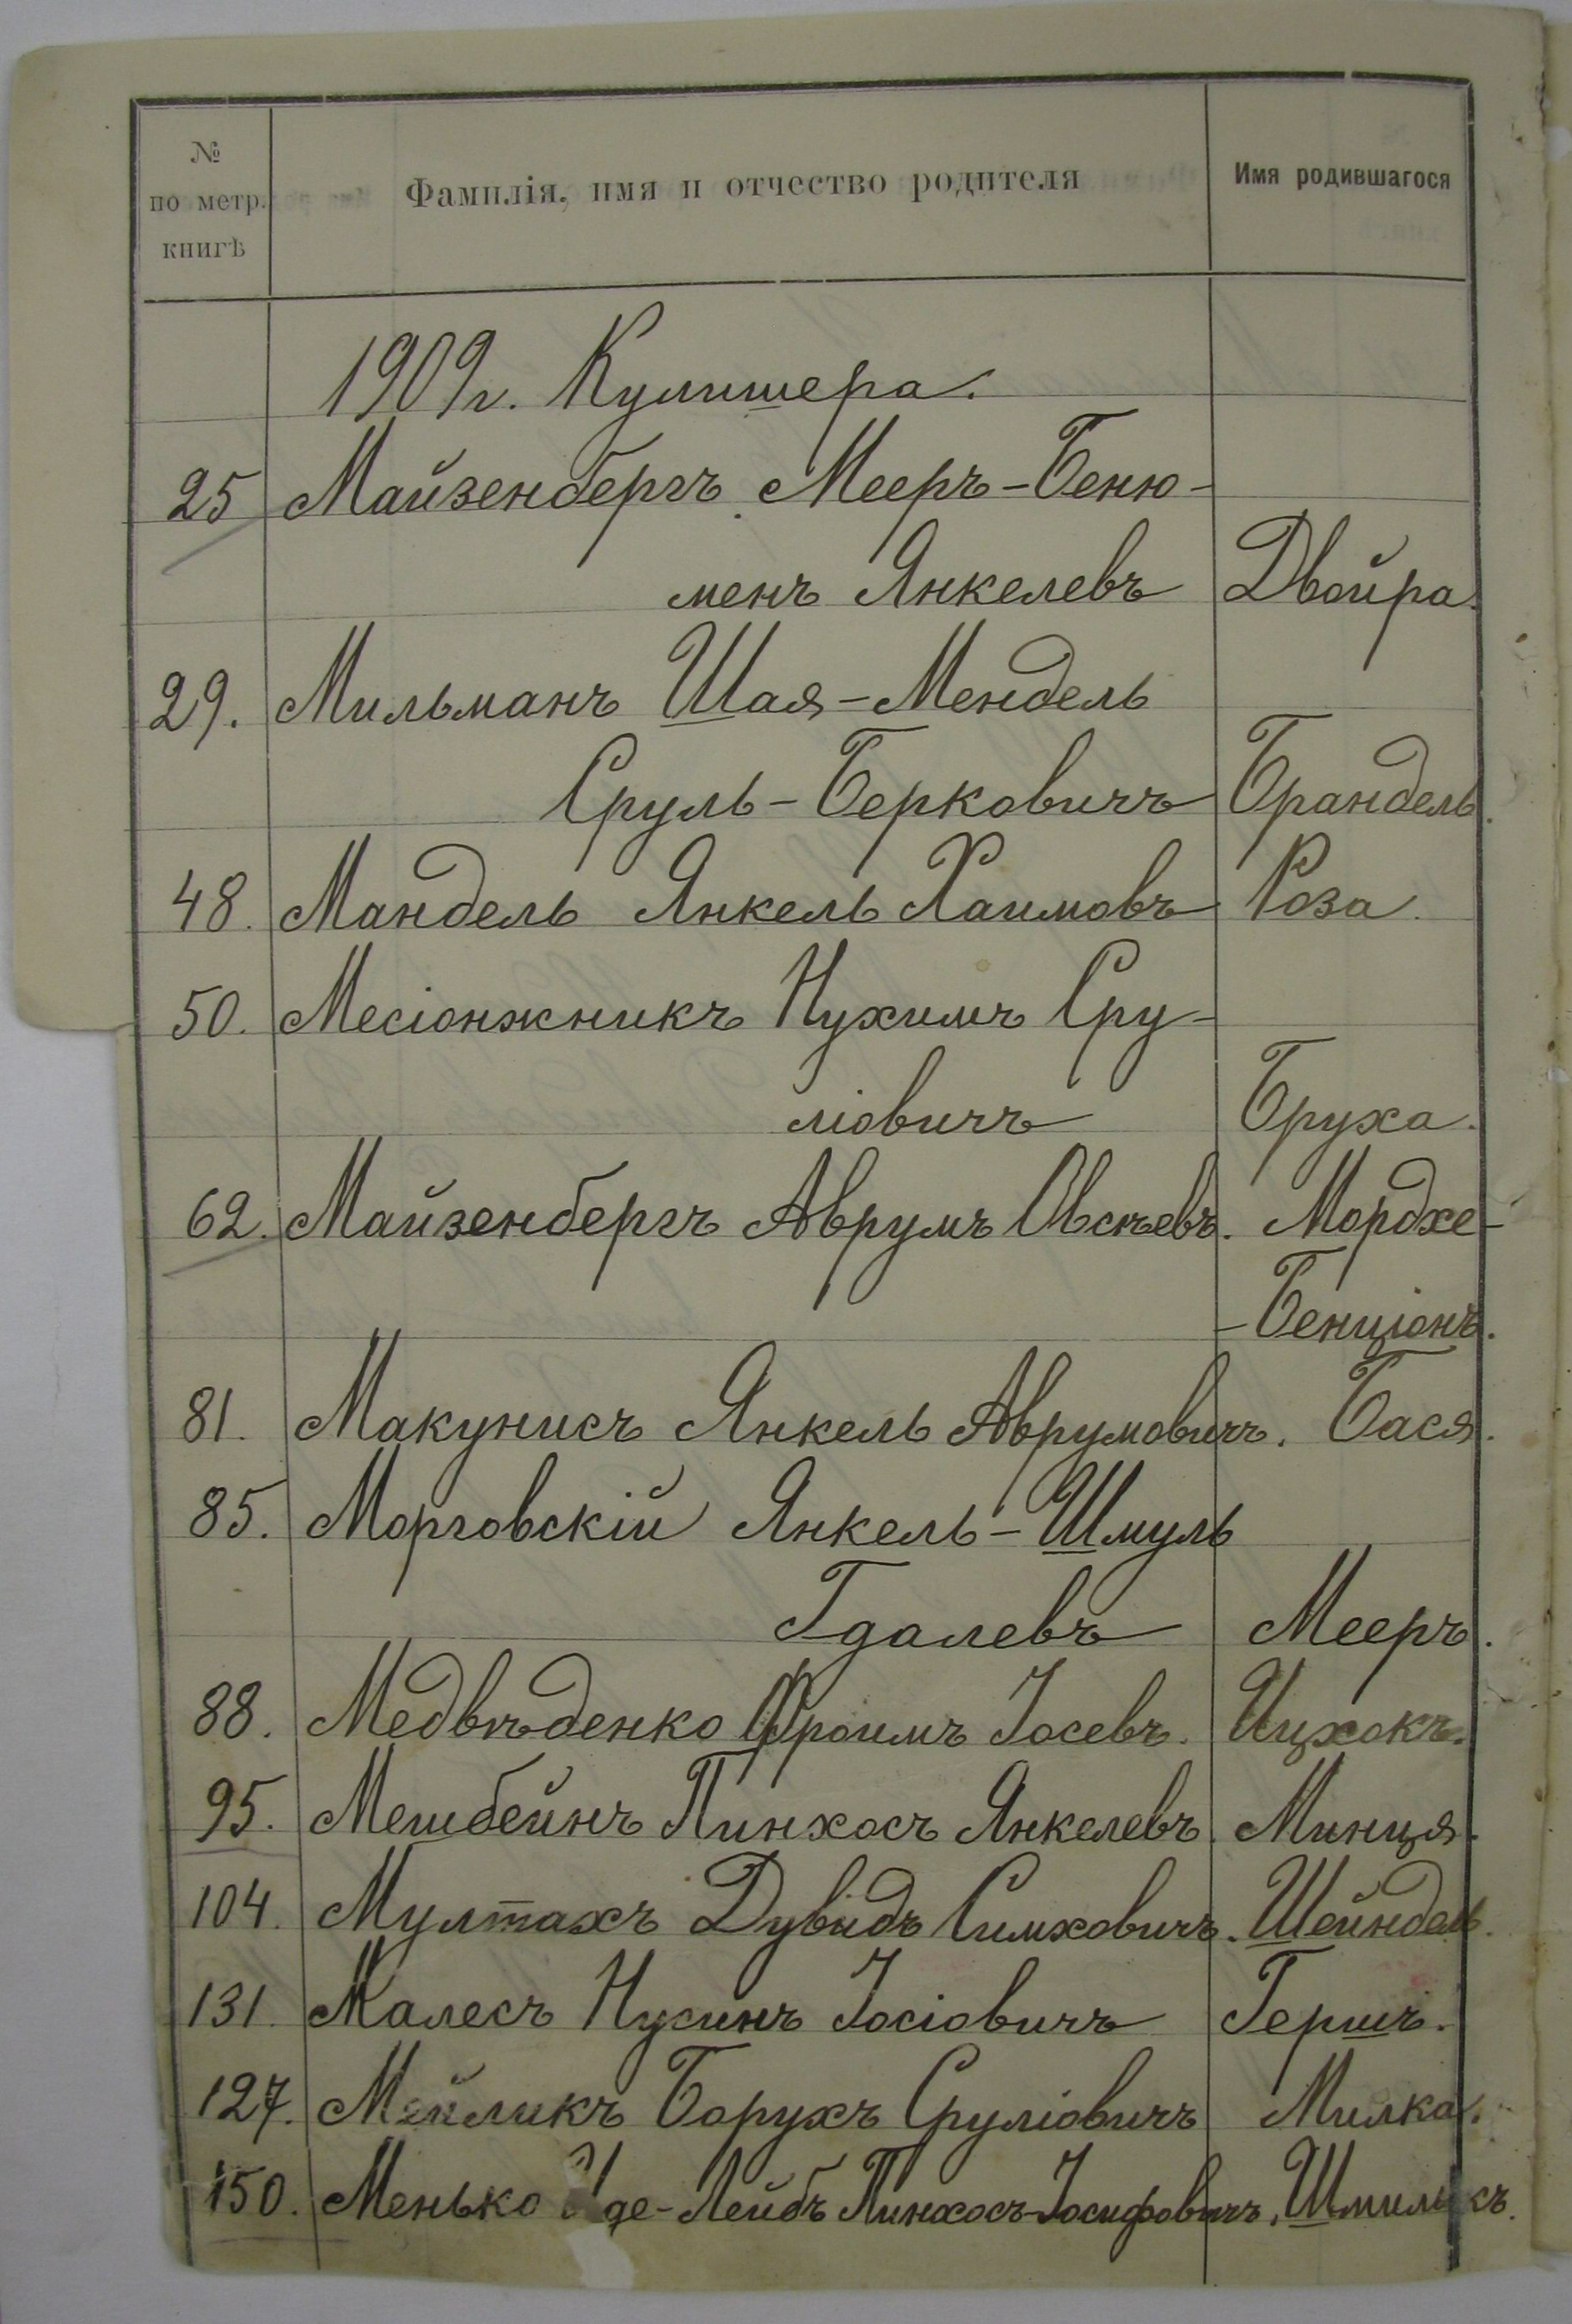 №
по метр.
книгѣ
Фамилія, имя и отчество родителя
Имя родившагося
1909 г. Кулишера.
25 Майзенбергъ Мееръ-Беню-
менъ Янкелевъ Двойра.
29. Мильманъ Шая-Мендель
Сруль-Берковичъ Брандель.
48. Мандель Янкель Хаимовъ Роза.
50. Месіонжникъ Нухимъ Сру-
ліовичъ Бруха.
62. Майзенбергъ Аврумъ Овсѣевъ. Мордхе-
-Бенціонъ.
81. Макунисъ Янкель Аврумовичъ. Бася.
85. Морговскій Янкель-Шмуль
Гдалевъ Мееръ.
88. Медвѣденко Фроимъ Іосевъ. Ицхокъ.
95. Мешбейнъ Пинхосъ Янкелевъ. Минця.
104. Мултахъ Дувидъ Симховичъ. Шейндель.
131. Малесъ Нусинъ Іосіовичъ Гершъ.
127. Мейликъ Борухъ Сруліовичъ Милка.
150. Менько -Лейбъ Пинхосъ-Іосифовичъ. Шмиликъ.